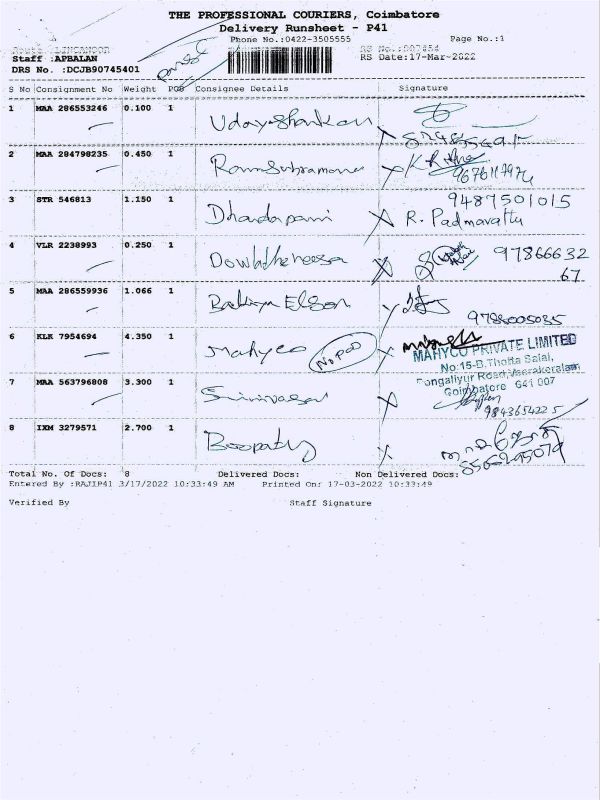 THE PROFESSIONAL COURIERS, Coimbatore
Delivery Runsheet - P41
Phone No.:0422-3505555 Page No.:1
Staff :APBALAN RS Date:17-Mar-2022
DRS No. :DCJB90745401
S No Consignment No Weight PCS Consignee Details Signature
1 MAA 286553246 0.100 1
2 MAA 284798235 0.450 1
9487501015
3 STR 546813 1.150 1 Dhandapani R. Padmavathy
4 VLR 2238993 0.250 1 97866632
67
5 MAA 286559936 1.066 1
9788005035
6 KLK 7954694 4.350 1 Mahyco No POD
MAHYCO PRIVATE LIMITED
No:15-B.Thotta Salai,
Pongaliyur Road,Veerakeralam
Coimbatore 641 007
7 MAA 563796808 3.300 1 Srinivasan
9843654225
8 IXM 3279571 2.700 1 Boopathy
Total No. Of Docs: 8 Delivered Docs: Non Delivered Docs:
Entered By :RAJIP41 3/17/2022 10:33:49 AM Printed On: 17-03-2022 10:33:49
Verified By Staff Signature